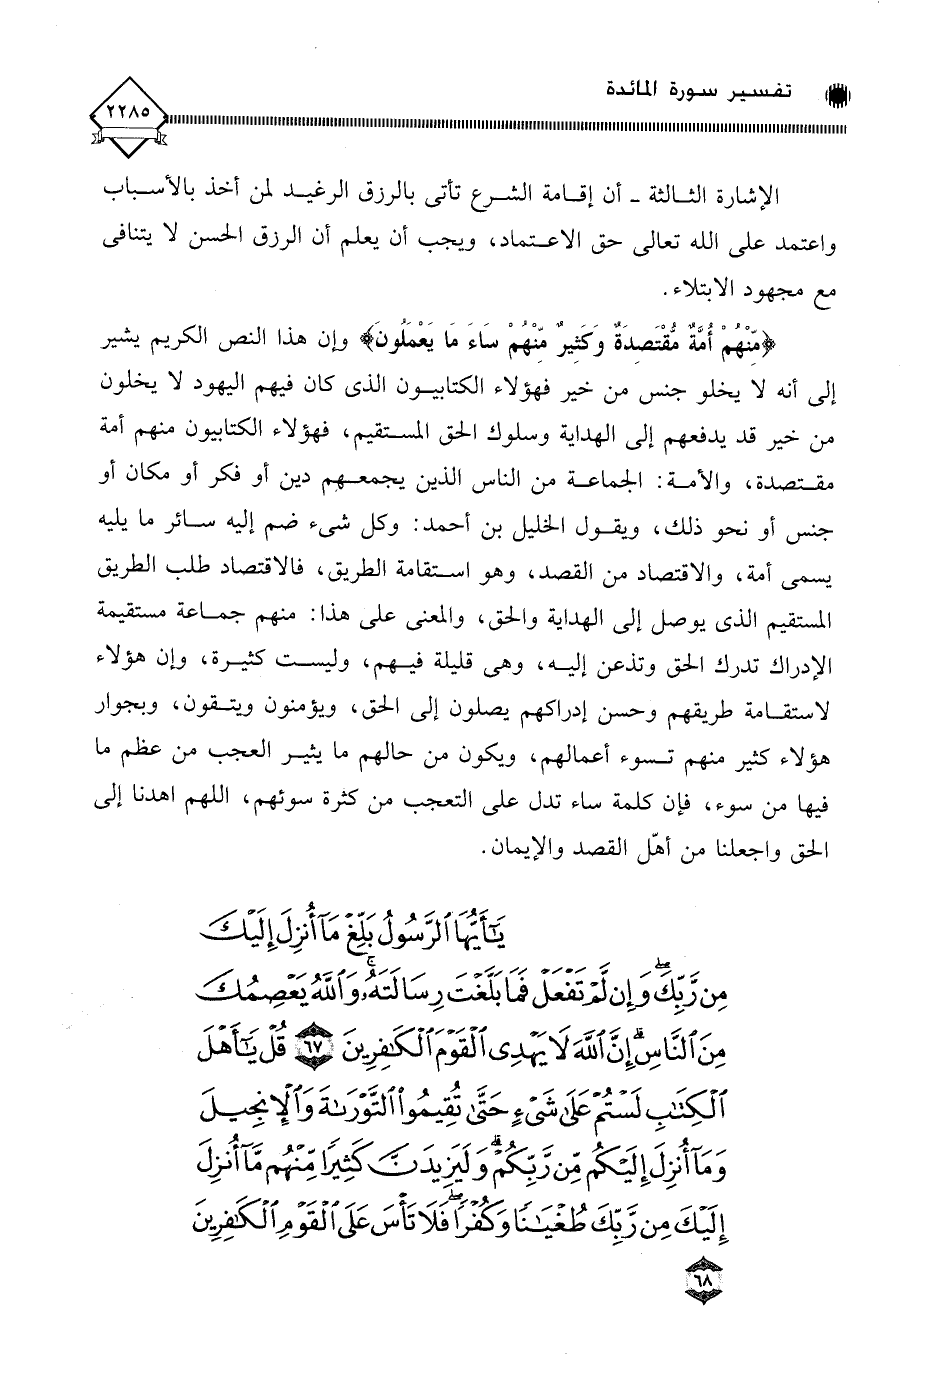 تفسير سورة المائدة
٢٢٨٥
الإشارة الثالثة - أن إقامة الشرع تأتى بالرزق الرغيد لمن أخذ بالأسباب
واعتمد على الله تعالى حق الاعتماد، ويجب أن يعلم أن الرزق الحسن لا يتنافى
مع مجهود الابتلاء.
﴿مِّنْهُمْ أُمَّةٌ مُّقْتَصِدَةٌ وَكَثِيرٌ مِّنْهُمْ سَاءَ مَا يَعْمَلُونَ﴾ وإن هذا النص الكريم يشير
إلى أنه لا يخلو جنس من خير فهؤلاء الكتابيون الذى كان فيهم اليهود لا يخلون
من خير قد يدفعهم إلى الهداية وسلوك الحق المستقيم، فهؤلاء الكتابيون منهم أمة
مقتصدة، والأمة: الجماعة من الناس الذين يجمعهم دين أو فكر أو مكان أو
جنس أو نحو ذلك، ويقول الخليل بن أحمد: وكل شىء ضم إليه سائر ما يليه
يسمى أمة، والاقتصاد من القصد، وهو استقامة الطريق، فالاقتصاد طلب الطريق
المستقيم الذى يوصل إلى الهداية والحق، والمعنى على هذا: منهم جماعة مستقيمة
الإدراك تدرك الحق وتذعن إليه، وهى قليلة فيهم، وليست كثيرة، وإن هؤلاء
لاستقامة طريقهم وحسن إدراكهم يصلون إلى الحق، ويؤمنون ويتقون، وبجوار
هؤلاء كثير منهم تسوء أعمالهم، ويكون من حالهم ما يثير العجب من عظم ما
فيها من سوء، فإن كلمة ساء تدل على التعجب من كثرة سوئهم، اللهم اهدنا إلى
الحق واجعلنا من أهل القصد والإيمان.
يَٰٓأَيُّهَا ٱلرَّسُولُ بَلِّغْ مَآ أُنزِلَ إِلَيْكَ
مِن رَّبِّكَ ۖ وَإِن لَّمْ تَفْعَلْ فَمَا بَلَّغْتَ رِسَالَتَهُۥ ۚ وَٱللَّهُ يَعْصِمُكَ
مِنَ ٱلنَّاسِ ۗ إِنَّ ٱللَّهَ لَا يَهْدِى ٱلْقَوْمَ ٱلْكَٰفِرِينَ ٦٧ قُلْ يَٰٓأَهْلَ
ٱلْكِتَٰبِ لَسْتُمْ عَلَىٰ شَىْءٍ حَتَّىٰ تُقِيمُوا۟ ٱلتَّوْرَىٰةَ وَٱلْإِنجِيلَ
وَمَآ أُنزِلَ إِلَيْكُم مِّن رَّبِّكُمْ ۗ وَلَيَزِيدَنَّ كَثِيرًا مِّنْهُم مَّآ أُنزِلَ
إِلَيْكَ مِن رَّبِّكَ طُغْيَٰنًا وَكُفْرًا ۖ فَلَا تَأْسَ عَلَى ٱلْقَوْمِ ٱلْكَٰفِرِينَ
٦٨